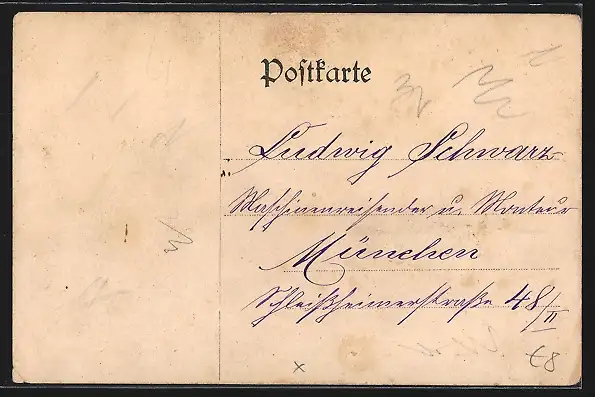 Postkarte
Ludwig Schwarz
Maschinenreisender u. Monteur
München
Schleißheimerstraße 48/II